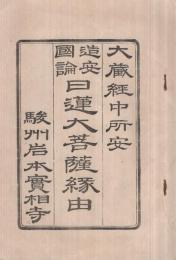 大藏經中所安
造安
國論
日蓮大菩薩緣由
駿州岩本實相寺